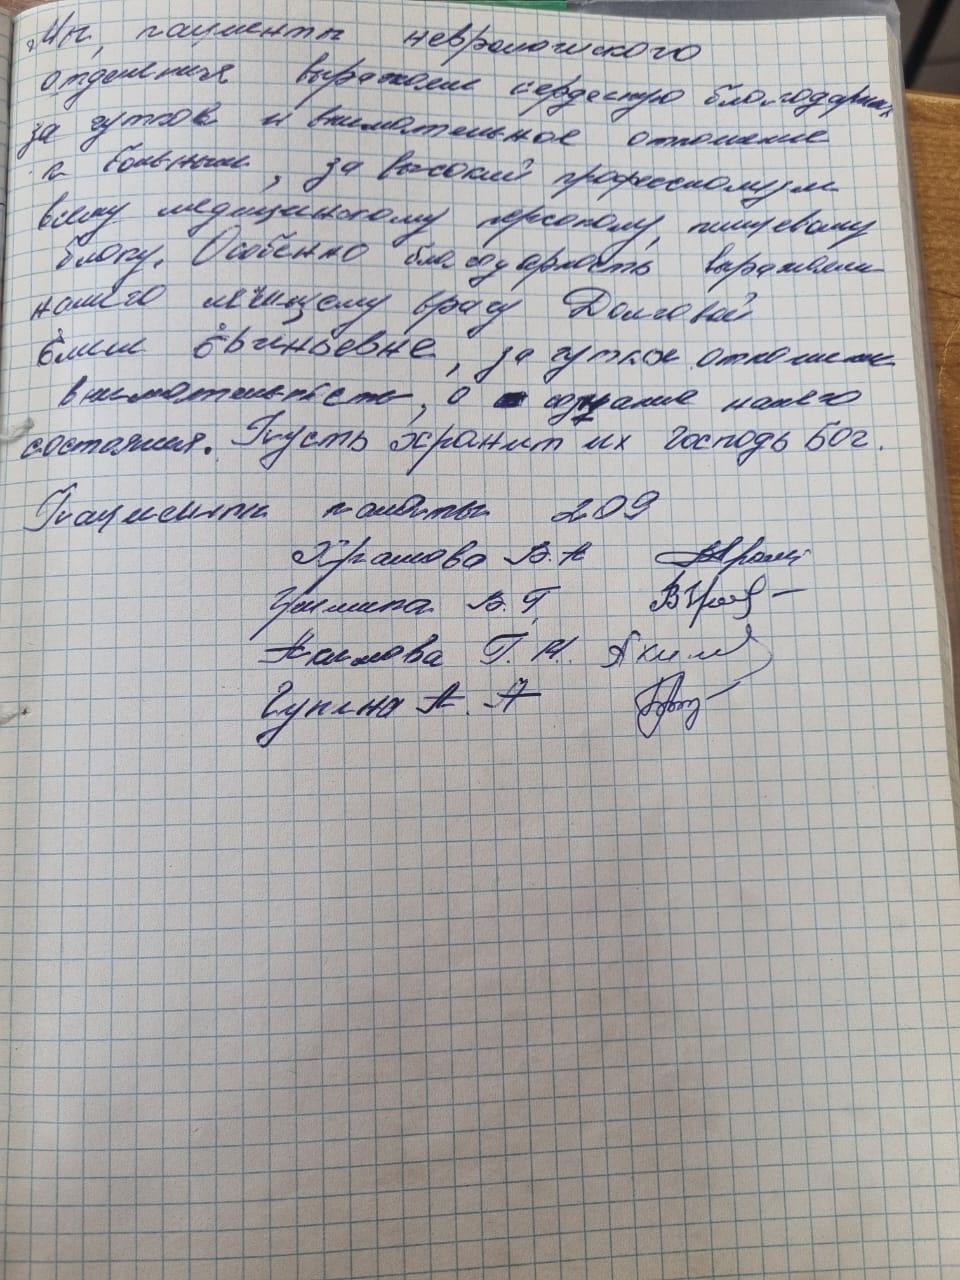 Мы, пациенты неврологического
отделения выражаем сердечную благодарность
за чуткое и внимательное отношение
к больным, за высокий професионализм
всему медицинскому персоналу, пищевому
блоку. Особенно благодарность выражаем
нашего лечищему врачу Долговой
Евгиньевне, за чуткое отношение
внимательность, о нашего
состояния. Пусть хранит их Господь Бог.
Пациенты палаты 209
Храмова В. А
В. Г.
Акимова Г. М. Аким
Гунина А. А